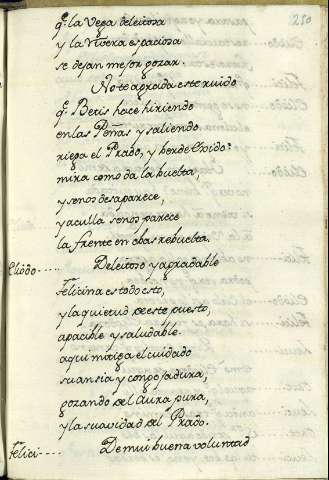 250
qe. la Vega deleitosa
y la Rivera espaciosa
se dejan mejor gozar.
No te agrada este ruido
qe. Betis hace hiriendo
en las Peñas y saliendo
riega el Prado, y berde Exido?
mira como da la buelta,
y se nos desaparece,
y aculla se nos parece
la frente en obas rebuelta.
Clodo.... Deleitoso y agradable
Felicina es todo esto,
y la quietud de este puesto,
apacible y saludable.
aqui mitiga el cuidado
su ansia y congojadura,
gozando del Aura pura,
y la suavidad del Prado.
Felici.... De mui buena voluntad